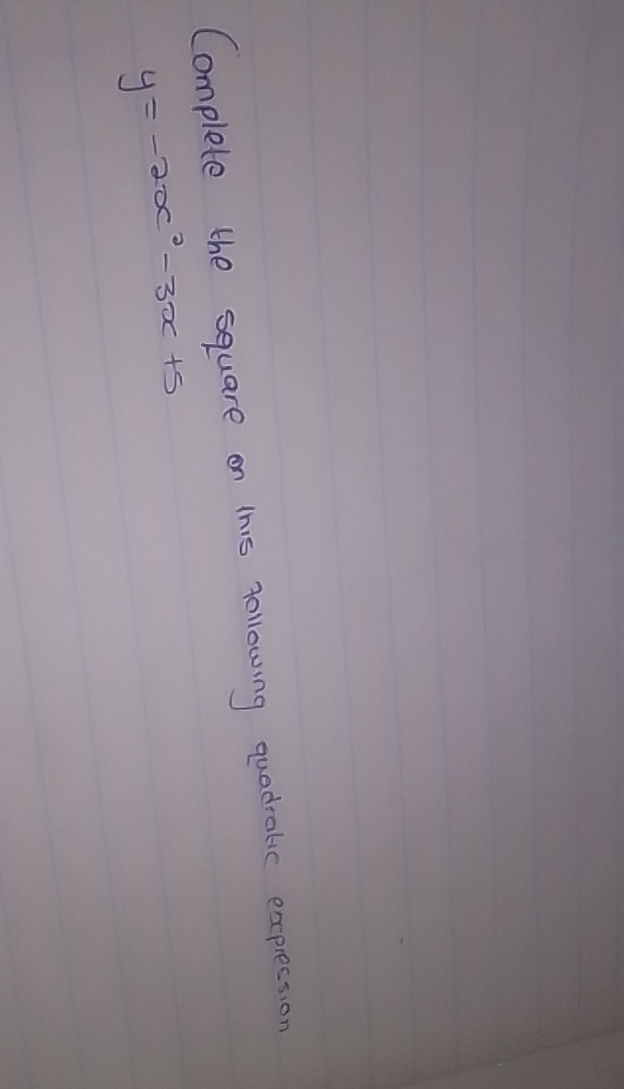 Complete the square on this following quadratic expression
y = -2x² - 3x + 5